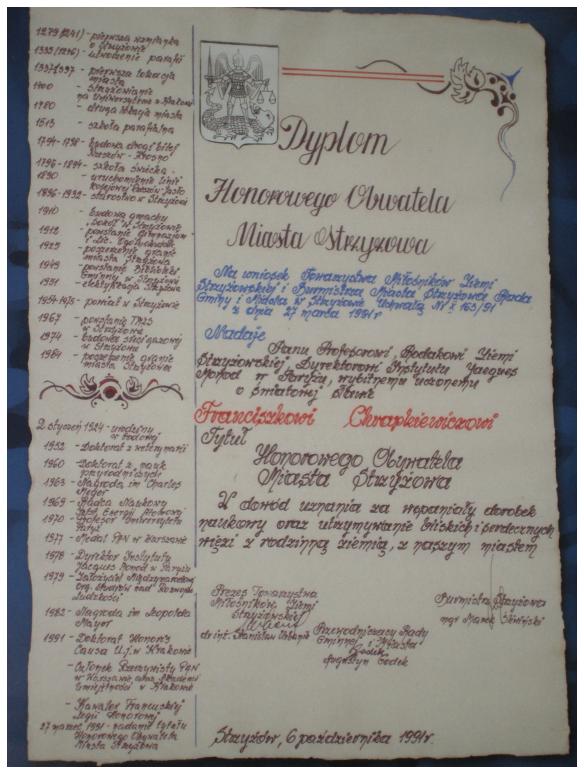 1279(1241) - pierwsza wzmianka
o Strzyżowie
1333(1276) - utworzenie parafii
- pierwsza lokacja
miasta
1400 - Strzyżowianie
na Uniwersytecie w Krakowie
1480 - druga lokacja miasta
1513 - szkoła parafialna
1794-1798 - budowa drogi bitej
Rzeszów - Krosno
1796-1894 - szkoła świecka
1890 - uruchomienie linii
kolejowej Rzeszów-Jasło
1896-1932 - starostwo w Strzyżowie
1910 - budowa gmachu
"Sokół" w Strzyżowie
1912 - powstanie Gimnazjum
i Lic. Ogólnokszt.
1925 - poszerzenie granic
miasta Strzyżowa
1949 - powstanie Biblioteki
Gminnej w Strzyżowie
1951 - elektryfikacja Strzyżowa
1954-1975 - powiat w Strzyżowie
1967 - powstanie
w Strzyżowie
1974 - budowa sieci gazowej
w Strzyżowie
1984 - poszerzenie granic
miasta Strzyżowa
2 styczeń 1924 - urodzony
w
1952 - Doktorat z weterynarii
1960 - Doktorat z nauk
przyrodniczych
1963 - Nagroda im Charles
Meyer
1969 - Radca Naukowy
Energii Atomowej
1970 - Profesor Uniwersytetu
Paryż
1977 - Medal PAN w Warszawie
1978 - Dyrektor Instytutu
Jacques Monod w Paryżu
1979 - Założyciel Międzynarodowej
Org. Ludzkości
1982 - Nagroda im Leopolda
Mayer
1991 - Doktorat Honoris
Causa U.J. w Krakowie
- Członek Rzeczywisty PAN
w Warszawie, oraz Akademii
Umiejętności w Krakowie
- Kawaler Francuskiej
Legii Honorowej
27 marzec 1991 - nadanie tytułu
Honorowego Obywatela
Miasta Strzyżowa
Dyplom
Honorowego Obywatela
Miasta Strzyżowa
Na wniosek Towarzystwa Miłośników Ziemi
Strzyżowskiej i Burmistrza Miasta Strzyżowa Rada
Gminy i Miasta w Strzyżowie Uchwałą Nr X 163/91
z dnia 27 marca 1991r
Nadaje
Panu Profesorowi, Rodakowi Ziemi
Strzyżowskiej, Dyrektorowi Instytutu Jacques
Monod w Paryżu, wybitnemu uczonemu
o światowej sławie
Franciszkowi Chrapkiewiczowi
Tytuł
Honorowego Obywatela
Miasta Strzyżowa
W dowód uznania za wspaniały dorobek
naukowy oraz utrzymywanie bliskich i serdecznych
więzi z rodzinną ziemią, z naszym miastem
Prezes Towarzystwa
Miłośników Ziemi
Strzyżowskiej
dr inż. Stanisław Urbanik
Przewodniczący Rady
Gminnej i Miasta
Augustyn Godek
Burmistrz Strzyżowa
mgr Marek Śliwiński
Strzyżów, 6 października 1991r.